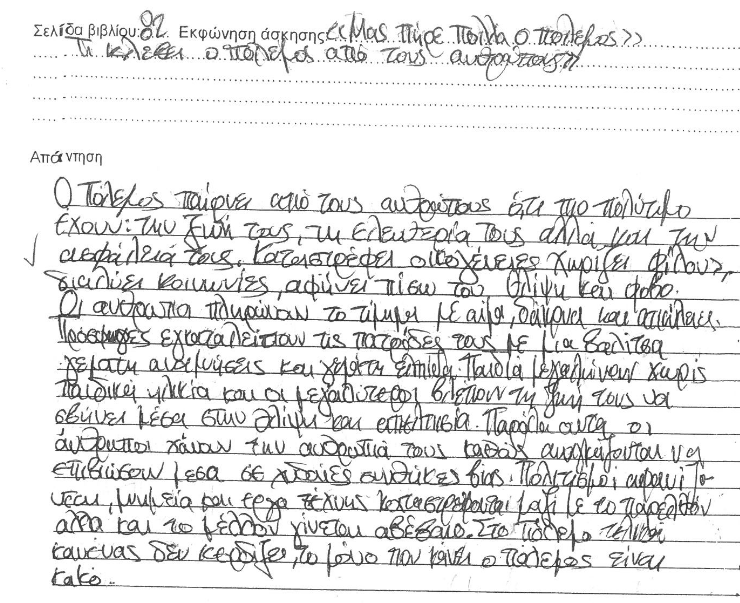 Σελίδα βιβλίου: 82 Εκφώνηση άσκησης «Μας πήρε πολλά ο πόλεμος»
Τι κλέβει ο πόλεμος από τους ανθρώπους»
Απάντηση
Ο πόλεμος παίρνει από τους ανθρώπους ό,τι πιο πολύτιμο
έχουν: την ζωή τους, τη ελευθερία τους αλλά και την
ασφάλειά τους. Καταστρέφει οικογένειες χωρίζει φίλους,
διαλύει κοινωνίες, αφήνει πίσω του θλίψη και φόβο.
Οι άνθρωποι πληρώνουν το τίμημα με αίμα, δάκρυα και απώλειες.
Πρόσφυγες εγκαταλείπουν τις πατρίδες τους με μια βαλίτσα
γεμάτη αναμνήσεις και γεμάτη ελπίδα. Παιδιά μεγαλώνουν χωρίς
παιδική ηλικία και οι μεγαλύτεροι βλέπουν τη ζωή τους να
σβήνει μέσα στην θλίψη και απελπισία. Παρόλα αυτά οι
άνθρωποι χάνουν την ανθρωπιά τους καθώς αναγκάζονται να
επιβιώσουν μέσα σε χυδαίες συνθήκες βίας. Πολιτισμοί αφανίζο
νται, μνημεία και έργα τέχνης καταστρέφονται μαζί με το παρελθόν
αλλά και το μέλλον γίνεται αβέβαιο. Στο πόλεμο τελικά
κανένας δεν κερδίζει, το μόνο που κάνει ο πόλεμος είναι
κακό.